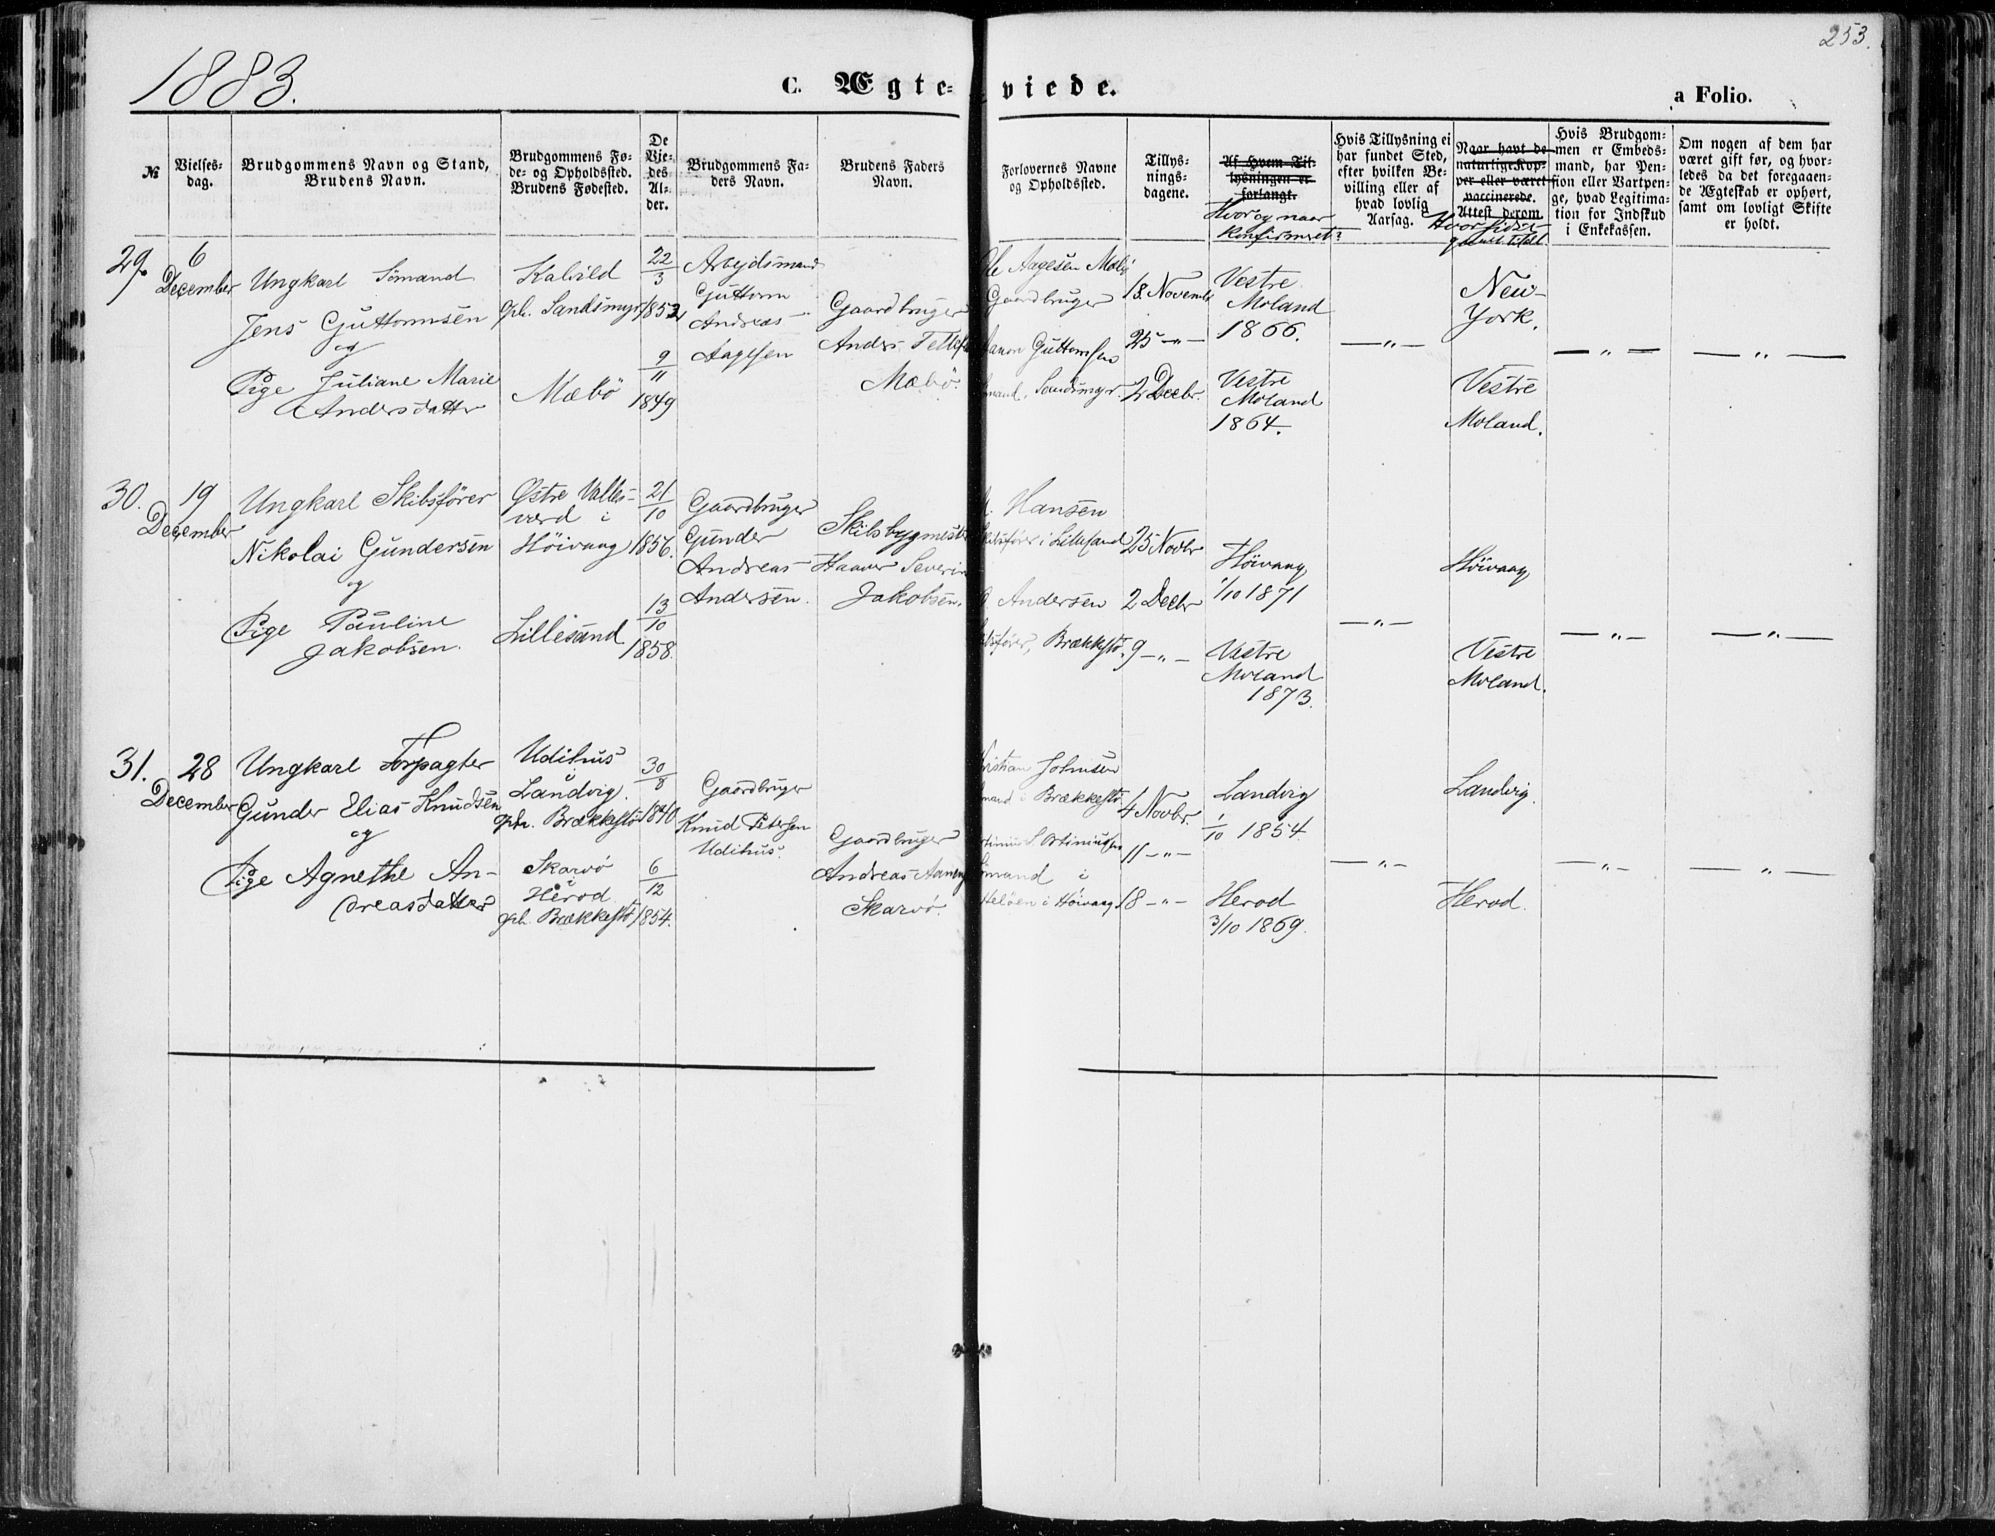 1883.
C. Ægte-
viede.
a Folio.
253.
№
Vielses-
dag.
Brudgommens Navn og Stand,
Brudens Navn.
Brudgommens Fø-
de- og Opholdssted.
Brudens Fødested.
De
Vie-
des
Al-
der.
Brudgommens Fa-
ders Navn.
Brudens Faders
Navn.
Forlovernes Navne
og Opholdssted.
Tillys-
nings-
dagene.
Af Hvem Til-
lysningen er
forlangt.
Hvor og naar
Konfirmeret?
Hvis Tillysning ei
har fundet Sted,
efter hvilken Be-
villing eller af
hvad lovlig
Aarsag.
Naar havt de
naturlige Kop-
per eller været
vaccinerede.
Attest derom
Hvor sidst
Hvis Brudgom-
men er Embeds-
mand, har Pen-
sion eller Vartpen-
ge, hvad Legitima-
tion for Indskud
i Enkekassen.
Om nogen af dem har
været gift før, og hvor-
ledes da det foregaaen-
de Ægteskab er ophørt,
samt om lovligt Skifte
er holdt.
29.
6
December
Ungkarl Sömand
Jens Guttormsen
og
Pige Juliane Marie
Andersdatter
Kalvild
Oph. Sandsmyr
Mæbö
22
3
1852
9
11
1849
Arbejdsmand
Guttorm
Andreas
Aagesen
Gaardbruger
Anders Tellefs
Mæbö.
Aagesen Mæbö
Gaardbruger
Guttormsen
Sandsmyr.
18. Novemb
25 - „ -
2 Decbr.
Vestre
Moland
1866.
Vestre
Moland
1864.
— „ —
New-
York.
Vestre
Moland.
— „ —
— „ —
30.
19
December
Ungkarl Skibsförer
Nikolai Gundersen
og
Pige Pauline
Jakobsen.
Østre Valles-
værd i
Höivaag
Lillesand
21
10
1856.
13
10
1858.
Gaardbruger
Gunder
Andreas
Andersen.
Skibsbygmester
Haaver Severin
Jakobsen.
Hansen
i Lillesand
Andersen
Brækkestö.
25 Novbr
2 Decbr
9 - „ -
Höivaag
1/10 1871
Vestre
Moland
1873.
— „ —
Höivaag
Vestre
Moland.
— „ —
— „ —
31.
28
December
Ungkarl Forpagter
Gunder Elias Knudsen
og
Pige Agnethe An-
dreasdatter
Udihus
Landvig.
Oph. Brækkestö
Skarvö
Herod
Oph. Brækkestö
30
8
1840
6
12
1854.
Gaardbruger
Knud Petersen
Udihus.
Gaardbruger
Andreas
Skarvö.
Johnsen
i Brækkestö
i
i Höivaag
4 Novbr.
11 - „ -
18 - „ -
Landvig
1/10 1854.
Herod
3/10 1869.
— „ —
Landvig.
Herod.
— „ —
— „ —